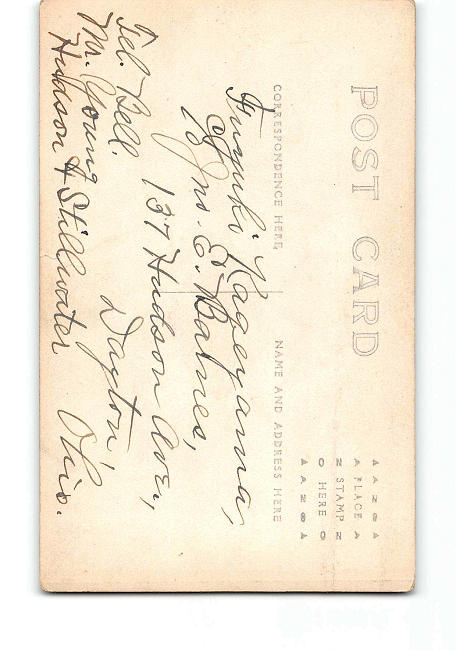 POST CARD
CORRESPONDENCE HERE
NAME AND ADDRESS HERE
A A N S A
A PLACE A
N STAMP N
O HERE O
A A N S A
Kageyama,
E. Balnes,
137 Hudson Ave.,
Dayton,
Ohio.
Tel. Bell.
Mr. Young
Hudson & Stillwater